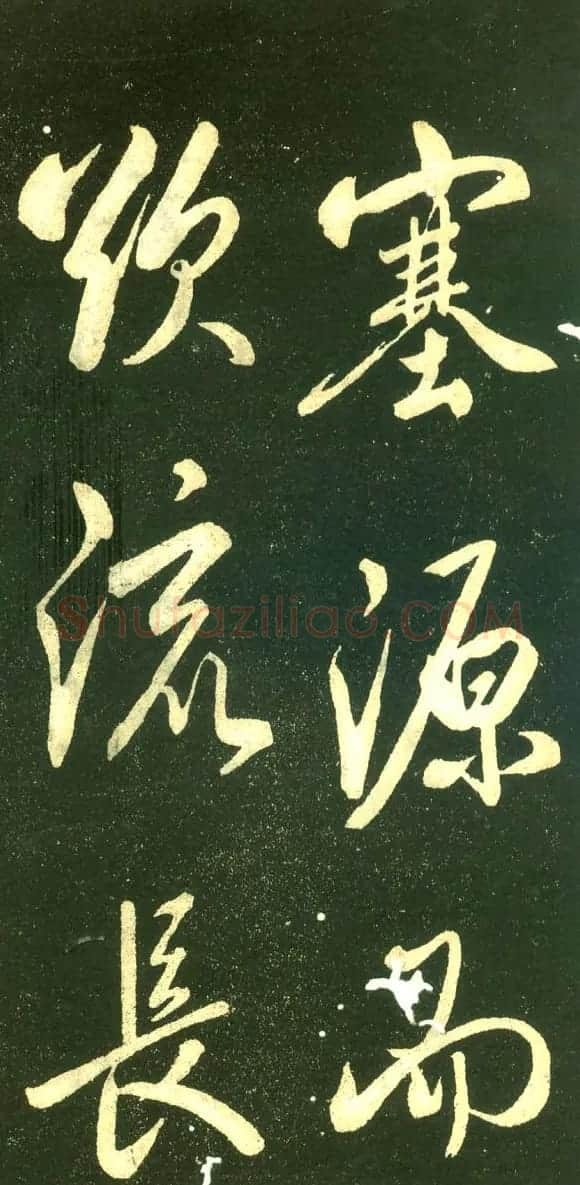 塞源
欲流長
Shufaziliao.COM